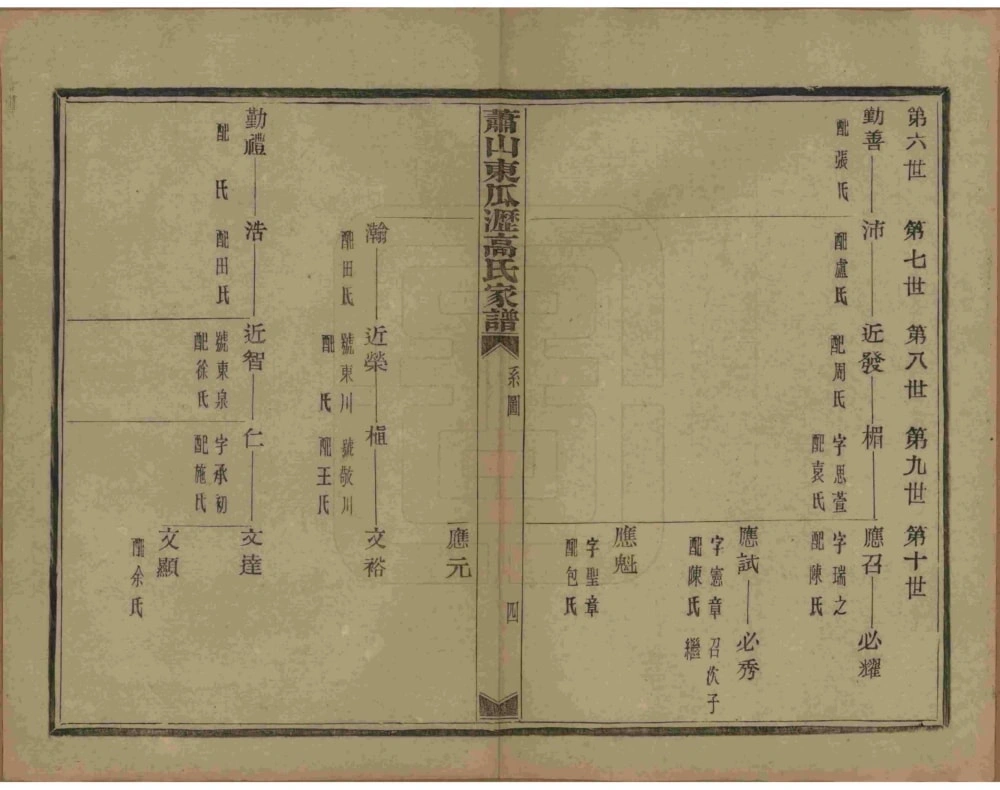 第六世
第七世
第八世
第九世
第十世
勤善
配張氏
沛
配盧氏
近發
配周氏
楣
字思萱
配袁氏
應召
字瑞之
配陳氏
必耀
應試
字憲章
配陳氏
必秀
召次子
繼
應魁
字聖章
配包氏
蕭山東瓜瀝高氏家譜
系圖
四
應元
瀚
配田氏
近榮
號東川
配 氏
植
號敬川
配王氏
文裕
勤禮
配 氏
浩
配田氏
近智
號東泉
配徐氏
仁
字承初
配施氏
文達
文顯
配余氏